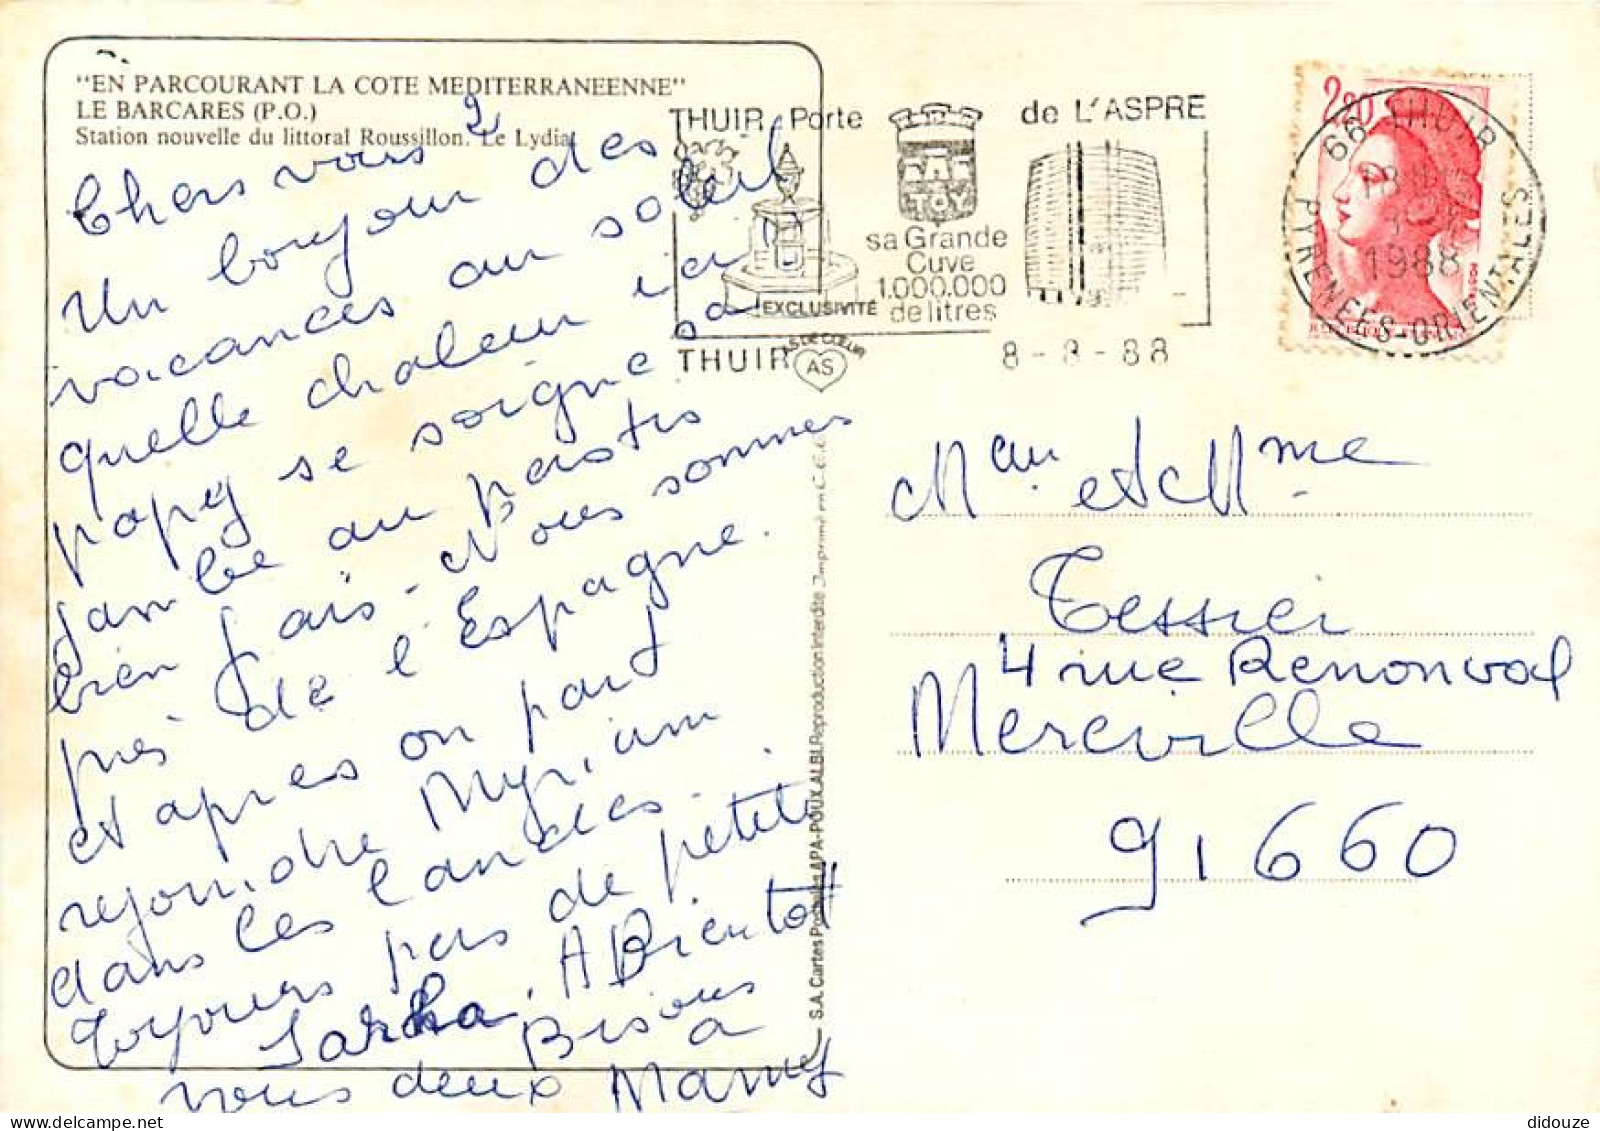 "EN PARCOURANT LA COTE MEDITERRANEENNE"
LE BARCARES (P.O.)
Station nouvelle du littoral Roussillon. Le Lydia.
Chers vous 2
Un bonjour des
vacances au soleil
quelle chaleur ici
papy se soigne sa
jambe au pastis
bien frais. Nous sommes
près de l'Espagne.
et après on part
rejoindre Myriam
dans les landes.
Toujours pas de petits
Sarha. A Bientott
Bisous
vous deux Mamy
à
THUIR Porte de L'ASPRE
TOY
sa Grande
Cuve
1.000.000
de litres
EXCLUSIVITÉ
AS DE CŒUR
THUIR AS
8-8-88
2,80
66 THUIR
1988
PYRENEES-ORIENTALES
S.A. Cartes Postales APA-POUX ALBI. Reproduction Interdite. Imprimé en C.E.E.
Mau et Mme
Tessier
4 rue Renonval
Mereville
91660
didouze